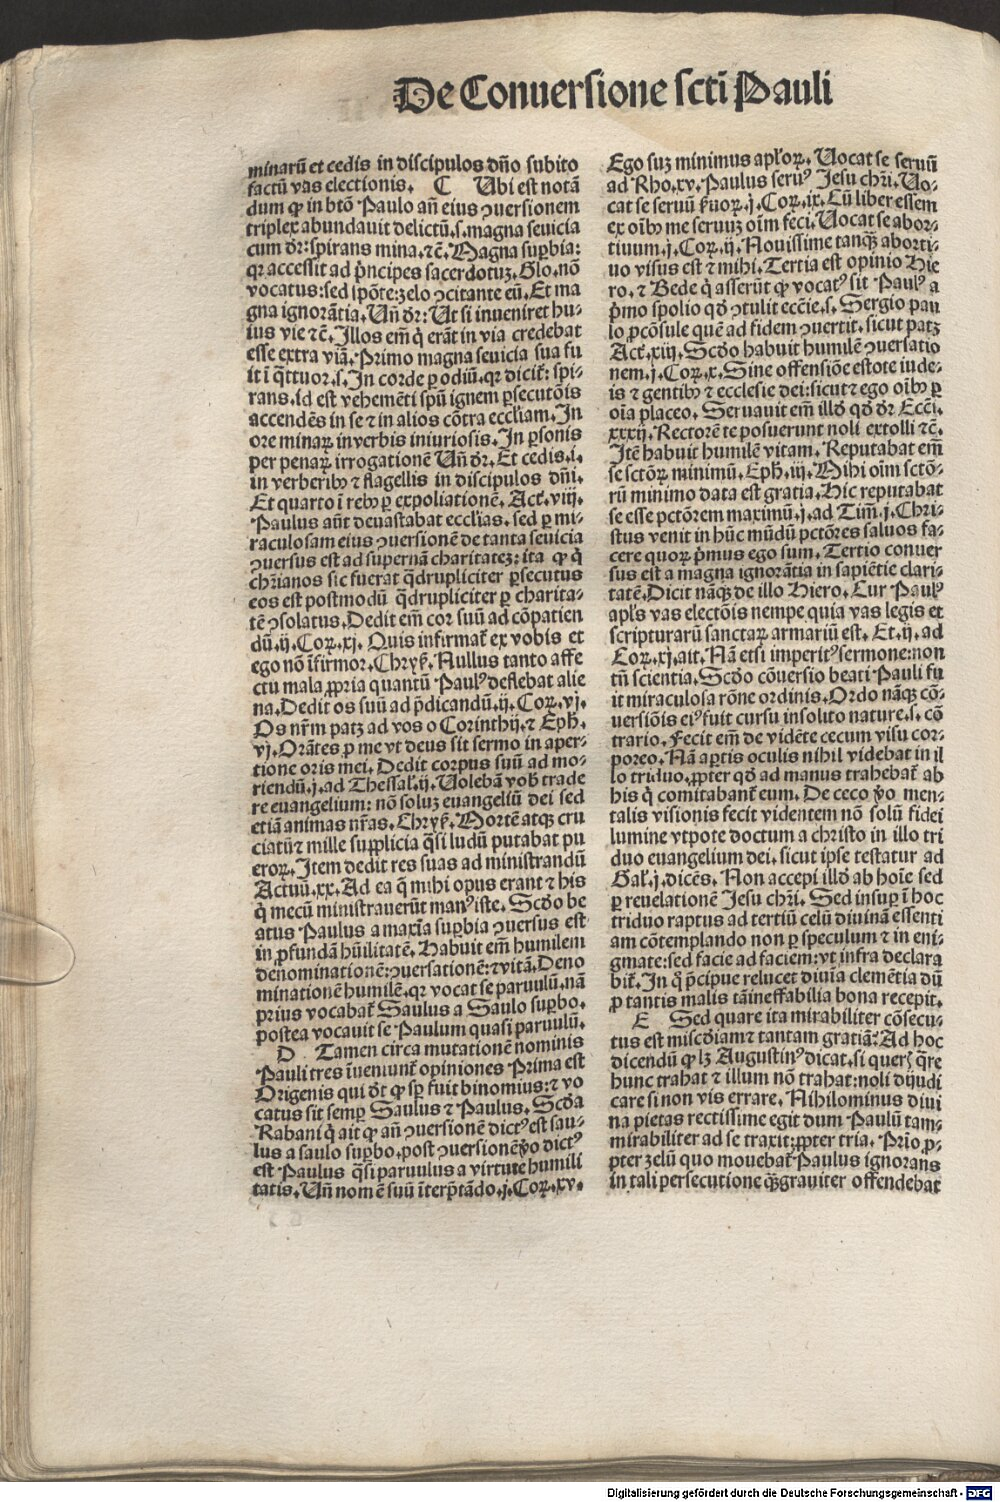 De Conuersione scti Pauli
minarū et cedis in discipulos dño subito
factū vas electionis. C Ubi est notā
dum ꝙ in btō Paulo añ eius ꝯuersionem
triplex abundauit delictū.s.magna seuicia
cum dr̄: spirans mina.⁊c̄. Magna suꝑbia:
qꝛ accessit ad p̄ncipes sacerdotuꝫ. Glo. nō
vocatus: sed spōte: zelo ꝯcitante eū. Et ma
gna ignorātia. Uñ dr̄: Ut si inueniret hu-
ius vie ⁊c̄. Illos em̄ q̇ erāt in via credebat
esse extra viā. Primo magna seuicia sua fu
it ī q̄ttuor.s. In corde ꝑ odiū. qꝛ dicit̄: spi-
rans. id est vehemēti spū ignem ꝑsecutōis
accendēs in se ⁊ in alios cōtra eccl̄iam. In
ore minaꝝ in verbis iniuriosis. In ꝑsonis
per penaꝝ irrogationē Uñ dr̄. Et cedis.i.
in verberibꝰ ⁊ flagellis in discipulos dn̄i.
Et quarto ī rebꝰ ꝑ expoliationē. Act̄. viij.
Paulus aūt deuastabat eccl̄ias. sed ꝑ mi-
raculosam eius ꝯuersionē de tanta seuicia
ꝯuersus est ad supernā charitateꝫ: ita ꝙ q̇
chr̄ianos sic fuerat q̄drupliciter ꝑsecutus
eos est postmodū q̄drupliciter ꝑ charita-
tē ꝯsolatus. Dedit em̄ cor suū ad cōpatien
dū. ij. Coꝝ. xj. Quis infirmat̄ ex vobis et
ego nō īfirmor. Chryẜ. Nullus tanto affe
ctu mala ꝓpria quantū Paulꝰ deflebat alie
na. Dedit os suū ad p̄dicandū. ij. Coꝝ. vj.
Os nr̄m patꝫ ad vos o Corinthij. ⁊ Eph̄.
vj. Orātes ꝑ me vt deus sit sermo in aper-
tione oris mei. Dedit corpus suū ad mo-
riendū. j. ad Thessal̄. ij. Uolebā vob̄ trade
re euangelium: nō soluꝫ euangeliū dei sed
etiā animas nr̄as. Chryẜ. Mortē atqꝫ cru
ciatū ⁊ mille supplicia q̄si ludū putabat pu
eroꝝ. Item dedit res suas ad ministrandū
Actuū. xx. Ad ea q̄ mihi opus erant ⁊ his
q̇ mecū ministrauerūt manꝰ iste. Scd̄o be
atus Paulus a maxīa suꝑbia ꝯuersus est
in ꝓfundā hūilitatē. Habuit em̄ humilem
denominationē: ꝯuersationē: ⁊ vitā. Deno
minationē humilē. qꝛ vocat se paruulū. nā
prius vocabat̄ Saulus a Saulo suꝑbo.
postea vocauit se Paulum quasi paruulū.
D Tamen circa mutationē nominis
Pauli tres īueniunt̄ opiniones Prima est
Origenis qui dr̄t ꝙ sp̄ fuit binomius: ⁊ vo
catus sit semꝑ Saulus ⁊ Paulus. Scd̄a
Rabani q̇ ait ꝙ añ ꝯuersionē dictꝰ est sau-
lus a saulo suꝑbo. post ꝯuersionē v̄o dictꝰ
est Paulus q̄si paruulus a virtute humili
tatis. Uñ nomē suū īterp̄tādo. j. Coꝝ. xv.
Ego suꝫ minimus apl̄oꝝ. Uocat se seruū
ad Rho. xv. Paulus seruꝰ Jesu chr̄i. Uo-
cat se seruū ẜuoꝝ. j. Coꝝ. ix. Cū liber essem
ex oībꝰ me seruuꝫ oīm feci. Uocat se abor-
tiuum. j. Coꝝ. ij. Nouissime tanqꝫ aborti-
uo visus est ⁊ mihi. Tertia est opinio Hie
ro. ⁊ Bede q̇ asserūt ꝙ vocatꝰ sit Paulꝰ a
p̄mo spolio qd̄ ꝯtulit eccl̄ie.s. Sergio pau
lo ꝓcōsule quē ad fidem ꝯuertit. sicut patꝫ
Act̄. xiij. Scd̄o habuit humilē ꝯuersatio
nem. j. Coꝝ. x. Sine offensiōe estote iude-
is ⁊ gentibꝰ ⁊ ecclesie dei: sicut ⁊ ego oībꝰ ꝑ
oīa placeo. Seruauit em̄ illd̄ qd̄ dr̄ Ecc̄i.
xxxij. Rectorē te posuerunt noli extolli ⁊c̄.
Itē habuit humilē vitam. Reputabat em̄
se sctōꝝ minimū. Eph̄. iij. Mihi oīm sctō-
rū minimo data est gratia. Hic reputabat
se esse pctōrem maximū. j. ad Tim̄. j. Chri-
stus venit in hūc mūdū pctōres saluos fa-
cere quoꝝ p̄mus ego sum. Tertio conuer
sus est a magna ignorātia in sapiētie clari-
tatē. Dicit nāqꝫ de illo Hiero. Cur Paulꝰ
apl̄s vas electōis nempe quia vas legis et
scripturarū sanctaꝝ armariū est. Et. ij. ad
Coꝝ. xj. ait. Nā etsi imperitꝰ sermone: non
tn̄ scientia. Scd̄o cōuersio beati Pauli fu
it miraculosa rōne ordinis. Ordo nāqꝫ cō-
uersiōis eiꝰ fuit cursu insolito nature.s. cō
trario. Fecit em̄ de vidēte cecum visu cor-
poreo. Nā aꝑtis oculis nihil videbat in il
lo triduo. ꝓpter qd̄ ad manus trahebat̄ ab
his q̇ comitabant̄ eum. De ceco v̄o men-
talis visionis fecit videntem nō solū fidei
lumine vtpote doctum a christo in illo tri
duo euangelium dei. sicut ipse testatur ad
Gal̄. j. dicēs. Non accepi illd̄ ab hoīe sed
ꝑ reuelationē Jesu chr̄i. Sed insuꝑ ī hoc
triduo raptus ad tertiū celū diuinā essenti
am cōtemplando non ꝑ speculum ⁊ in eni-
gmate: sed facie ad faciem: vt infra declara
bit̄. In q̊ p̄cipue relucet diuīa clemētia dū
ꝓ tantis malis tā ineffabilia bona recepit.
E Sed quare ita mirabiliter cōsecu-
tus est miscd̄iam ⁊ tantam gratiā: Ad hoc
dicendū ꝙ lꝫ Augustinꝰ dicat. si querꝭ q̄re
hunc trahat ⁊ illum nō trahat: noli dijudi
care si non vis errare. Nihilominus diui
na pietas rectissime egit dum Paulū tam-
mirabiliter ad se traxit: ꝓpter tria. Prīo ꝓ-
pter zelū quo mouebat̄ Paulus ignorans
in tali persecutione qꝫ grauiter offendebat
Digitalisierung gefördert durch die Deutsche Forschungsgemeinschaft - DFG